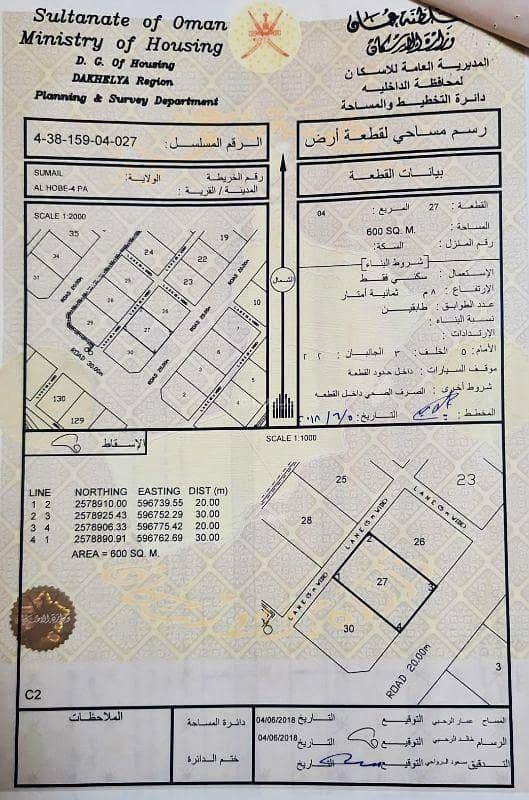 Sultanate of Oman
Ministry of Housing
D. G. Of Housing
DAKHELYA Region
Planning & Survey Department
سلطنة عمان
وزارة الإسكان
المديرية العامة للاسكان
لمحافظة الداخليه
دائرة التخطيط والمساحة
الرقم المسلسل: 4-38-159-04-027
رسم مساحي لقطعة أرض
SUMAIL الولاية: رقم الخريطة
AL HOBE-4 PA المدينة / القرية :
بيانات القطعة
SCALE 1:2000
35
34
37
24
19
23
22
25
26
27
28
29
30
10
1
2
3
4
130
129
ROAD 20.00m
ROAD 20.00m
ROAD 20.00m
ROAD 30.00m
الشمال
القطعة : 27 المربع : 04
المساحة : 600 SQ. M.
رقم المنزل : السكة:
شروط البناء
الإستعمال : سكني فقط
الإرتفاع : ٨ م ثمانية أمتار
عدد الطوابق : طابقين
نسبة البناء :
الإرتدادات :
الأمام: ٥ الخلف: ٣ الجانبان: ٢ ٢
موقف السيارات : داخل حدود القطعة
شروط أخرى : الصرف الصحي داخل القطعه
المخطط : التاريخ: ٢٠١٨/٦/٥
الإسقاط
SCALE 1:1000
LINE NORTHING EASTING DIST (m)
1 2 2578910.00 596739.55 20.00
2 3 2578925.43 596752.29 30.00
3 4 2578906.33 596775.42 20.00
4 1 2578890.91 596762.69 30.00
AREA = 600 SQ. M.
25
23
28
26
27
30
3
1
2
3
4
LANE (5 m WIDE)
LANE (5 m WIDE)
LANE (5 m WIDE)
ROAD 20.00m
C2
الملاحظات
دائرة المساحة
ختم الدائرة
المساح عمار الرحبي التوقيع التاريخ 04/06/2018
الرسام خالد الرحبي التوقيع التاريخ 04/06/2018
التدقيق سعود الرواحي التوقيع التاريخ